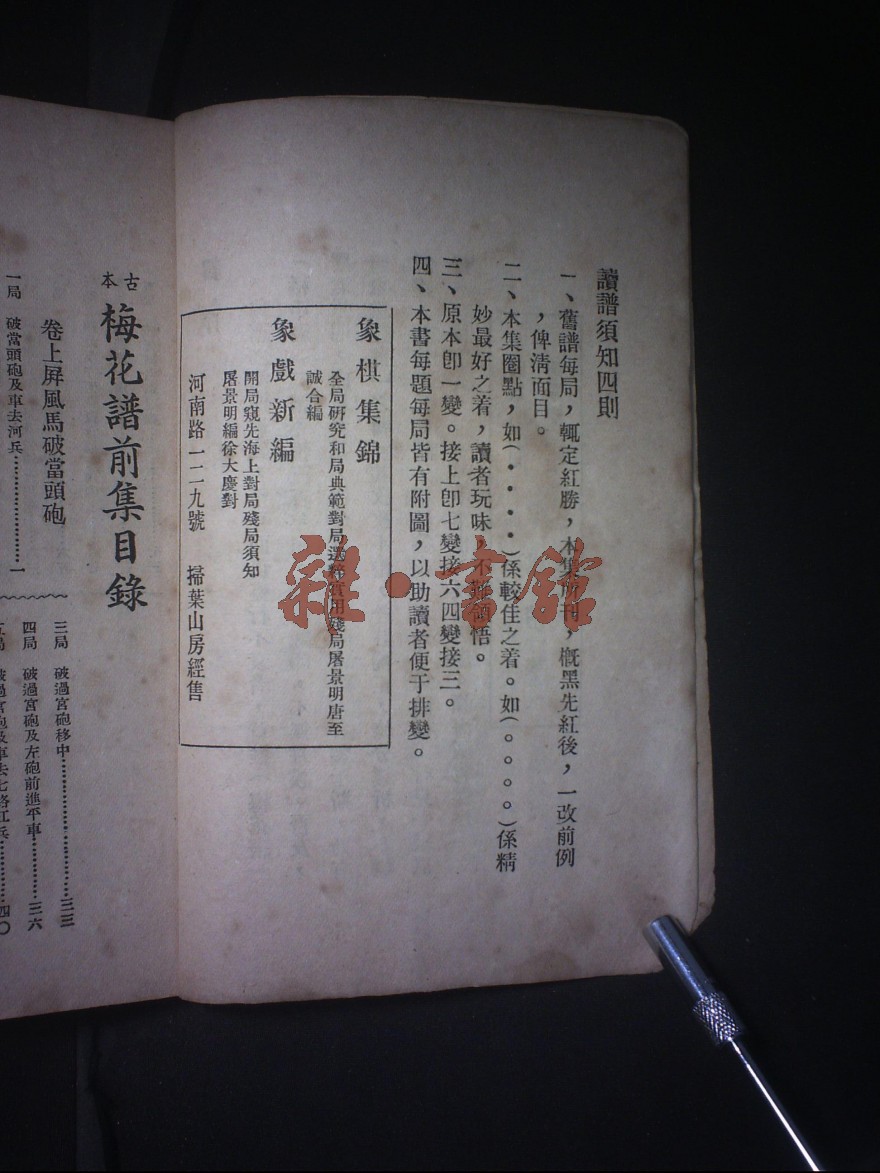 讀譜須知四則
一、舊譜每局,輒定紅勝,本集所刊,概黑先紅後,一改前例
,俾淸面目。
二、本集圈點,如(••••)係較佳之着。如(。。。。)係精
妙最好之着,讀者玩味,不難領悟。
三、原本卽一變。接上卽七變接六四變接三。
四、本書每題每局皆有附圖,以助讀者便于排變。
象棋集錦
全局硏究和局典範對局選粹實用殘局屠景明唐至
誠合編
象戲新編
開局窺先海上對局殘局須知
屠景明編徐大慶對
河南路一二九號 掃葉山房經售
古本
梅花譜前集目錄
卷上屏風馬破當頭砲
一局 破當頭砲及車去河兵⋯⋯⋯⋯一
三局 破過宮砲移中⋯⋯⋯⋯三三
四局 破過宮砲及左砲前進平車⋯⋯三六
五局 破過宮砲及車去七路紅兵⋯⋯四〇
雜·書館